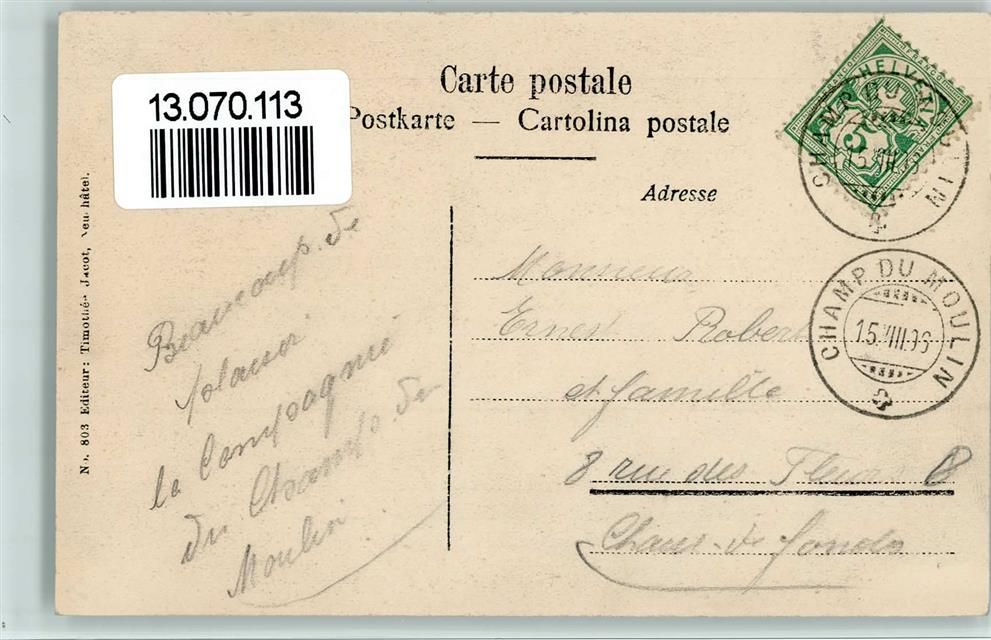 Carte postale
Postkarte — Cartolina postale
13.070.113
Adresse
HELVETIA
FRANCO
5
CHAMP DU MOULIN
CHAMP DU MOULIN
15.VIII.96
No. 803 Editeur: Timothée Jacot, Neuchâtel.
Beaucoup de
plaisir
la Compagnie
du Champs du
Moulin
Monsieur
Ernest Robert
et famille
8 rue des Fleurs 8
Chaux-de fonds